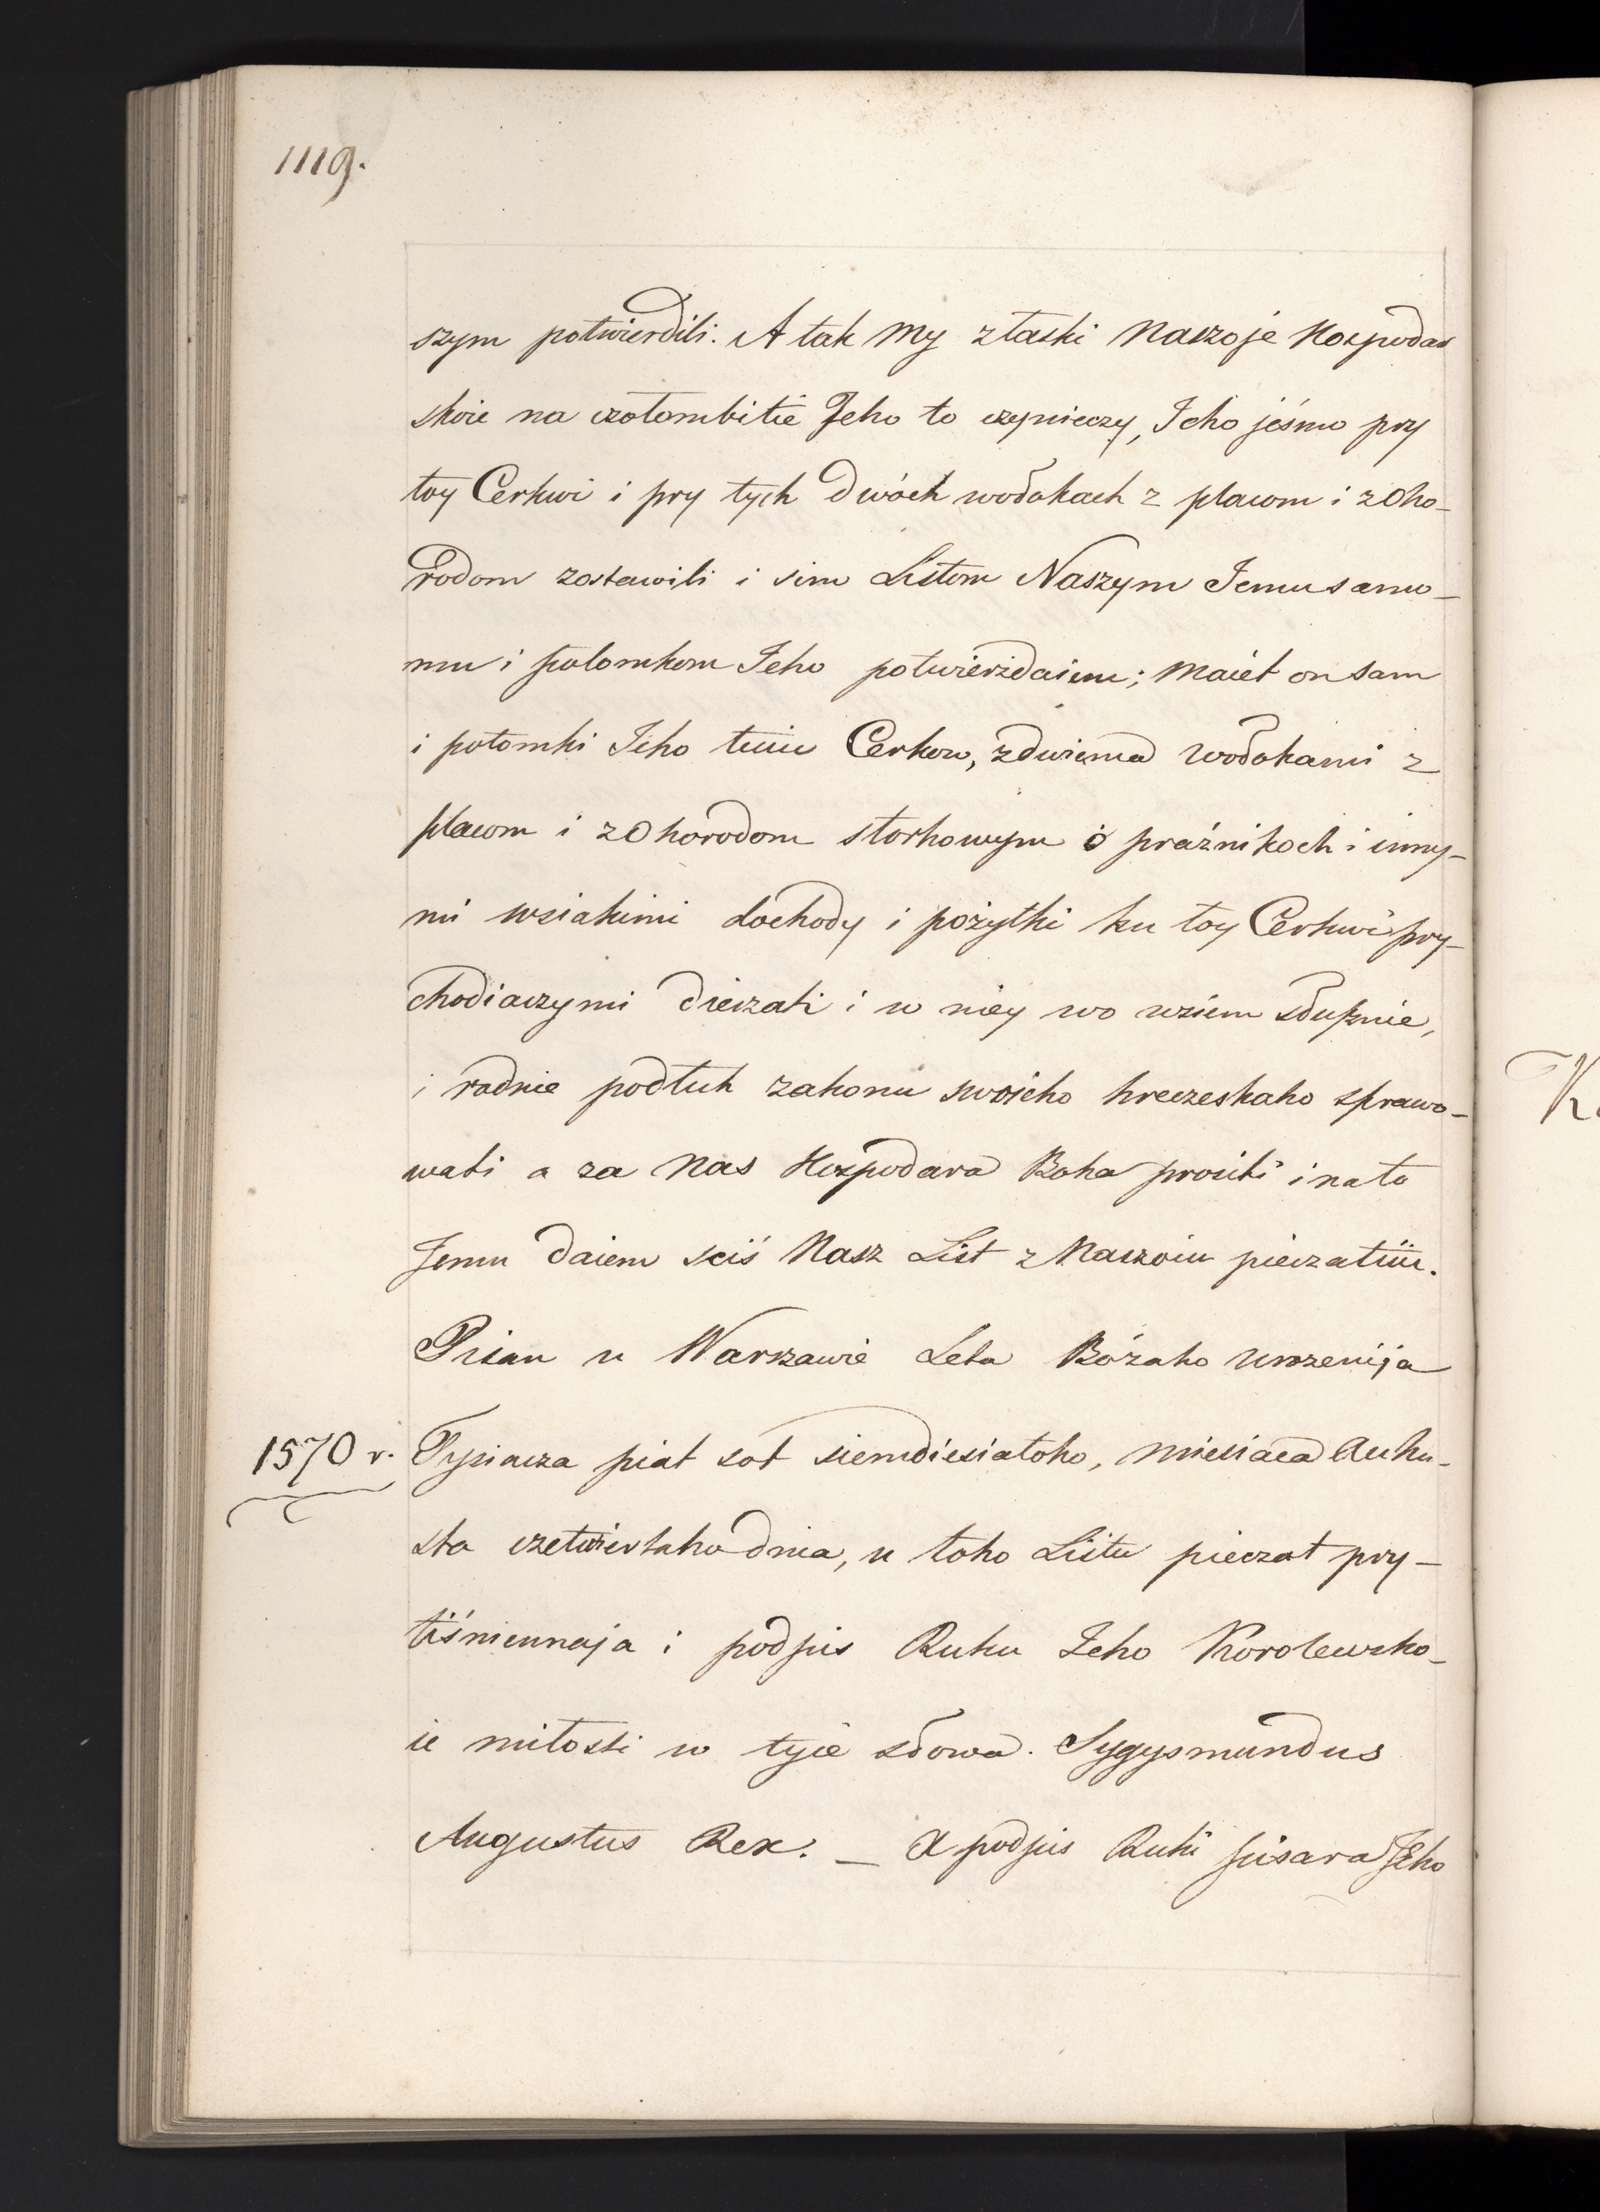 1119.
szym potwierdili. A tak My z łaski Naszoje Hospodar
skoie na czołombitie Jeho to czynieczy, Jeho jeśmo pry
toy Cerkwi i pry tych dwóch wołokach z placom i z Oho-
rodom zostawili i sim Listom Naszym Jemu samo-
mu i potomkom Jeho potwierżdaiem; Maiet on sam
i potomki Jeho tuiu Cerkow, z dwiema wołokami z
placom i z Ohorodom storhowym o praźnikoch i inny-
mi wsiakimi dochody i pożytki ku toy Cerkwi pry-
chodiaczymi dierzati i w niey wo wsiem słusznie,
i radnie podłuh zakonu swoieho hreczeskaho sprawo-
wati a za Nas Hospodara Boha prositi i na to
Jemu daiem seiś Nasz List z Naszoiu pieczatiiu.
Pisan u Warszawie Leta Bóżaho urożenija
1570 r. Tysiacza piat sot siemdiesiatoho, miesiaca Auhu-
sta czetwiertaho dnia, u toho Listu pieczat pry-
tiśniennaja i podpis Ruku Jeho Korolewsko-
ie miłosti w tyie słowa. Sygysmundus
Augustus Rex. — A podpis Ruki pisara Jeho